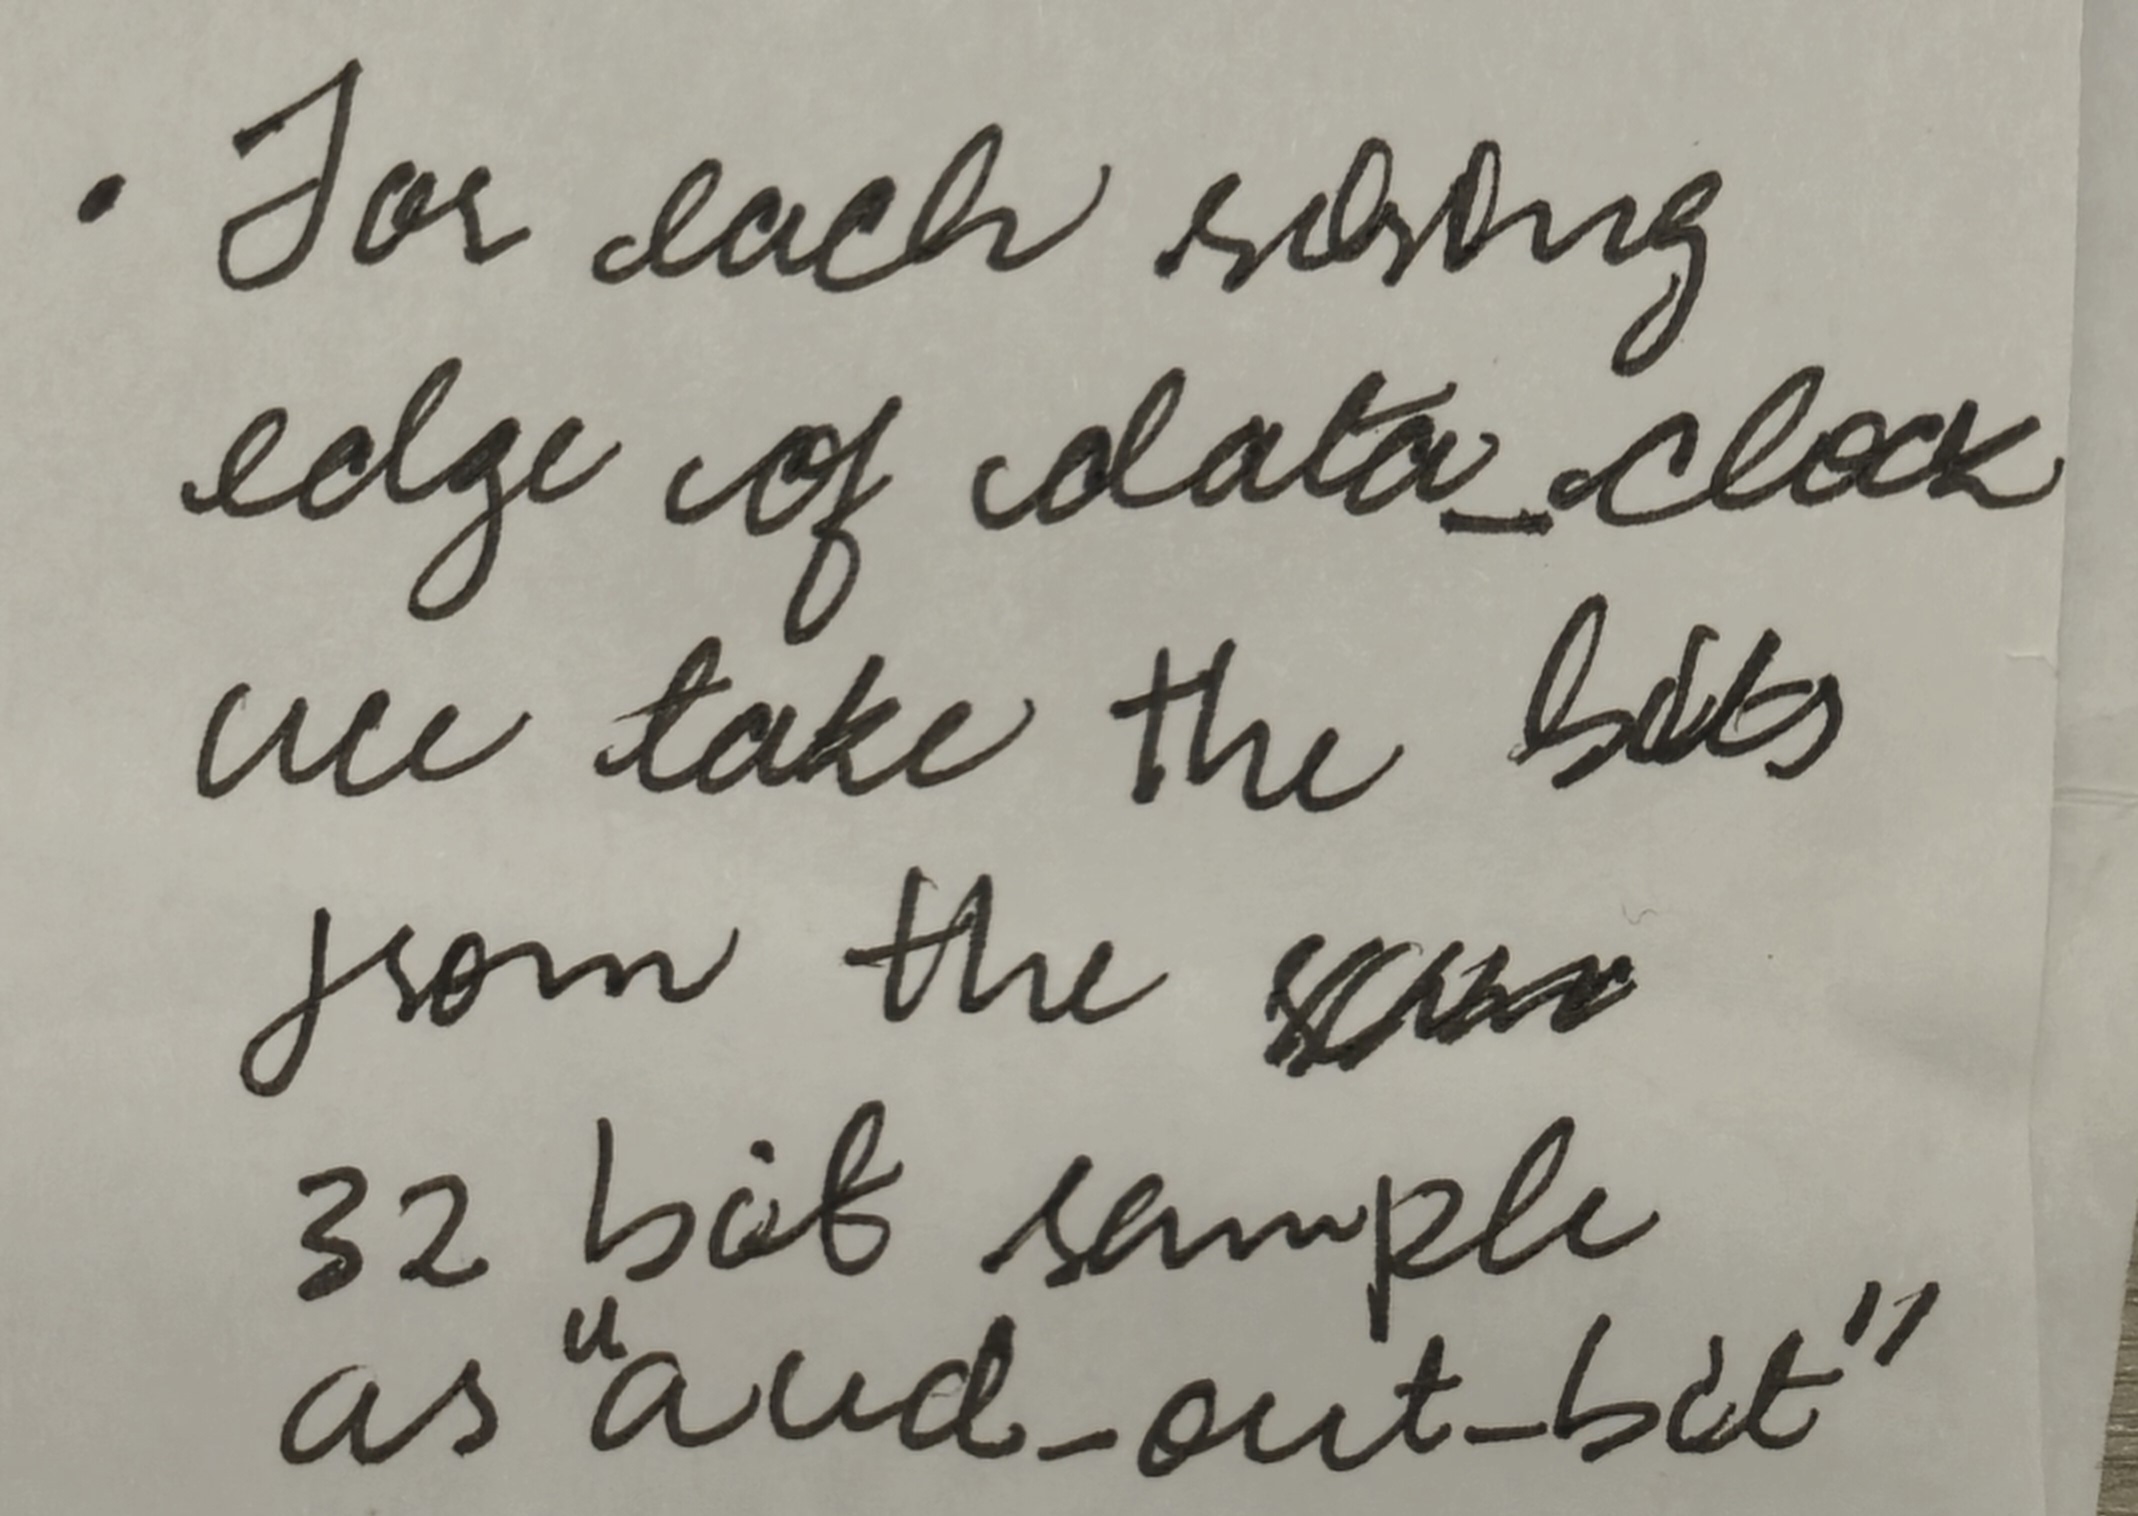 • For each rising
edge of data_clock
we take the bits
from the
32 bit sample
as "aud_out_bit"